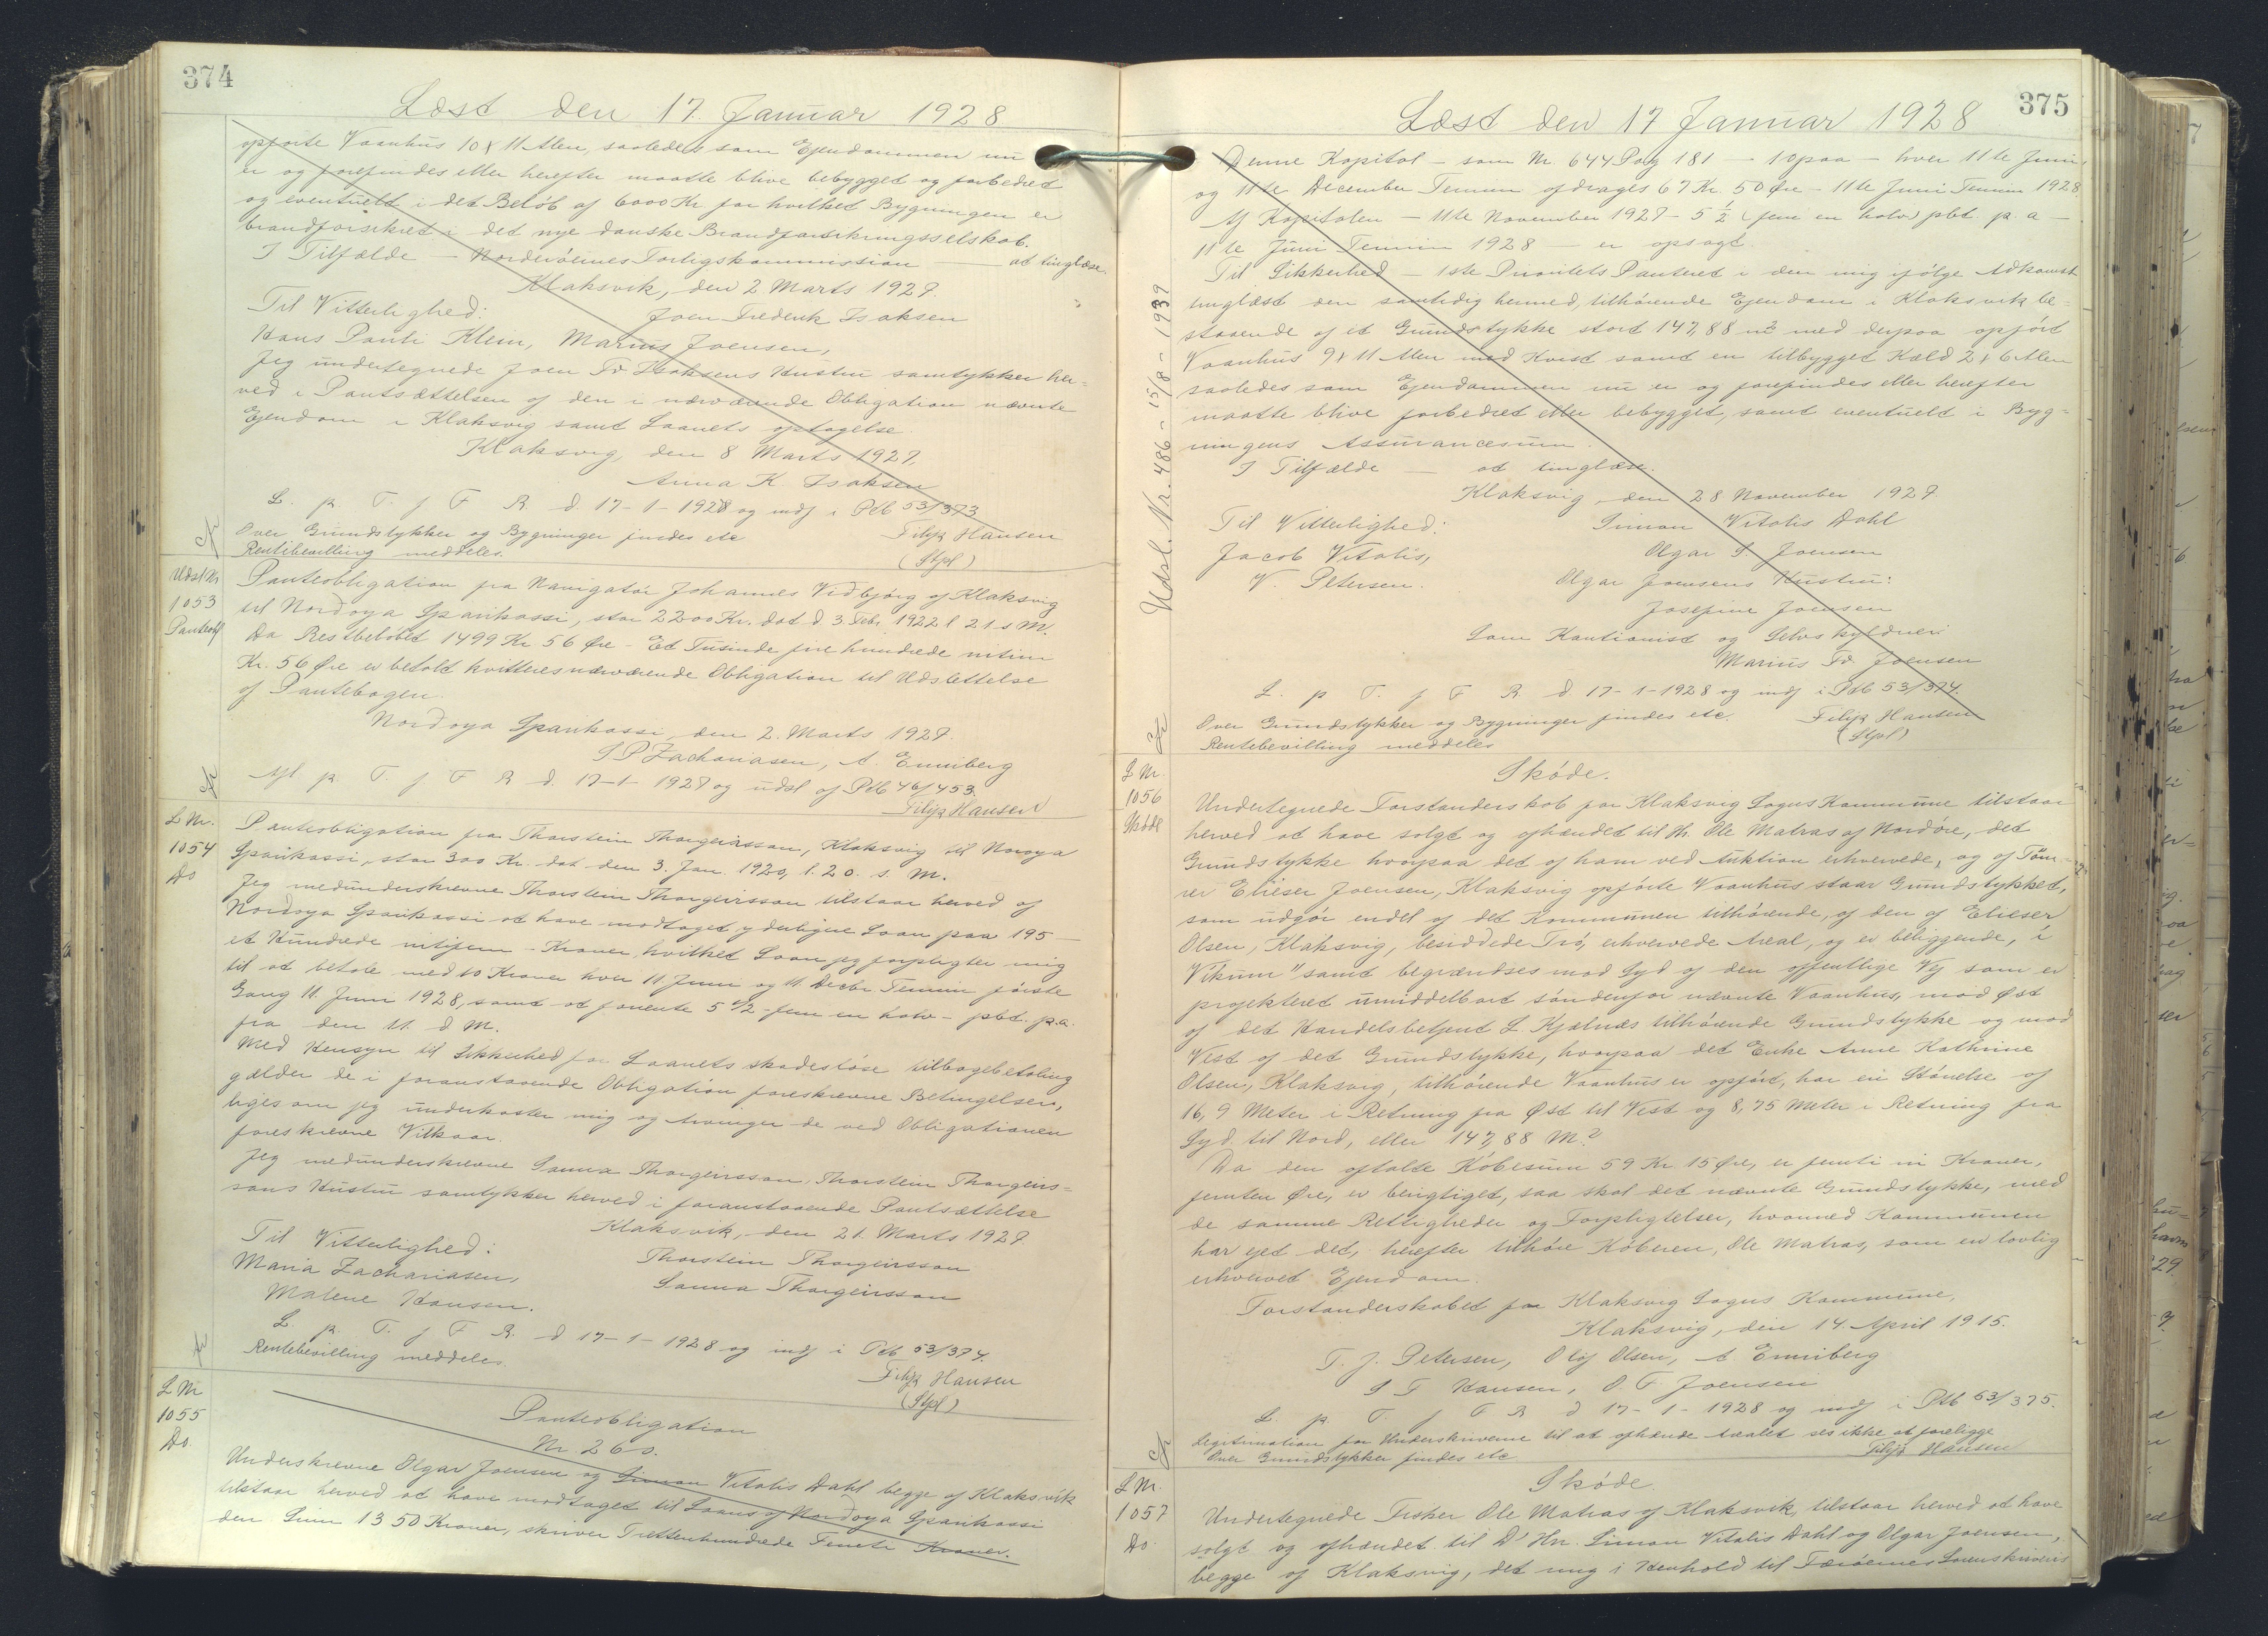 374
Læst den 17. Januar 1928
opførte Vaanhus 10 x 11 Alen, saaledes som Ejendommen nu
er og forefindes eller herefter maatte blive bebygget og forbedret
og eventuelt i det Beløb af 6000 Kr. for hvilket Bygningen er
brandforsikret i det nye danske Brandforsikringsselskab.
I Tilfælde — Norderøernes Forligskommission — at tinglæse.
Klaksvik, den 2. Marts 1927.
Til Vitterlighed:
Joen Frederik Isaksen
Hans Pauli Klein, Marius Joensen,
Jeg undertegnede Joen Fr. Isaksens Hustru samtykker her-
ved i Pantsættelsen af den i nærværende Obligation nævnte
Ejendom i Klaksvig samt Laanets optagelse.
Klaksvig, den 8 Marts 1927.
Anna K. Isaksen
L. p. T. f F R. d 17-1-1928 og indf i Ptb 53/373
Over Grundstykker og Bygninger findes etc
Filip Hansen
Rentebevilling meddeles.
(Stpl)
Udsl Nr
1053
Panteobl
Panteobligation fra Navigatør Johannes Vidbjørg af Klaksvig
til Nordoya Sparikassi, stor 2200 Kr. dat d 3. Febr. 1922 l 21. s. M.
Da Restbeløbet 1499 Kr 56 Øre - Et Tusinde fire hundrede nitini
Kr. 56 Øre er betalt kvitteres nærværende Obligation til Udslettelse
af Pantebogen.
Nordoya Sparikassi, den 2. Marts 1927.
S P Zachariasen, A. Enniberg
Afl p. T. f F R d. 17-1-1928 og udsl af Ptb 46/453.
Filip Hansen
L Nr.
1054
Do
Panteobligation fra Thorstein Thorgeirsson, Klaksvig til Noroya
Sparikassi, stor 300 Kr. dat den 3. Jan. 1920, l. 20. s. M.
Jeg medunderskrevne Thorstein Thorgeirsson tilstaar herved af
Nordoya Sparikassi at have modtaget yderligere Laan paa 195 —
et Hundrede nitifem - Kroner, hvilket Laan jeg forpligter mig
til at betale med 10 Kroner hver 11 Juni og 11. Decbr. Termin første
Gang 11. Juni 1928, samt at forrente 5 1/2 - fem en halv - pct. p.a.
fra den 11. d M.
Med Hensyn til Sikkerhed for Laanets skadesløse tilbagebetaling
gælder de i foranstaaende Obligation foreskrevne Betingelser,
ligesom jeg underkaster mig og tvinger de ved Obligationen
foreskrevne Vilkaar.
Jeg medunderskrevne Sanna Thorgeirsson, Thorstein Thorgeirs-
sons Hustru samtykker herved i foranstaaende Pantsættelse
Klaksvik, den 21. Marts 1927.
Til Vitterlighed:
Thorstein Thorgeirsson
Maria Zachariasen,
Sanna Thorgeirsson
Malene Hansen.
L. p. T. f F R. d 17-1-1928 og indf i Ptb 53/374.
Rentebevilling meddeles.
Filip Hansen
(Stpl)
L Nr
1055
Do.
Panteobligation
Nr. 260.
Underskrevne Olgar Joensen og Simon Vitalis Dahl begge af Klaksvik
tilstaar herved at have modtaget til Laans af Nordoya Sparikassi
den Sum 1350 Kroner, skriver Trettenhundrede Femti Kroner.
375
Læst den 17 Januar 1928
Denne Kapital - som Nr. 644 Pag 181 - 1 opaa - hver 11te Juni
og 11te December Termin afdrages 67 Kr. 50 Øre - 11te Juni Termin 1928
Af Kapitalen - 11te November 1927 - 5 1/2 (fem en halv) pct. p. a -
11te Juni Termin 1928 — er opsagt.
Til Sikkerhed - 1ste Prioritets Panteret i den mig ifølge Adkomst
tinglæst den samtidig hermed, tilhørende Ejendom i Klaksvik be-
staaende af et Grundstykke stort 147,88 m² med derpaa opført
Vaanhus 9 x 11 Alen med Kvist samt en tilbygget Kæld 2 x 6 Alen
saaledes som Ejendommen nu er og forefindes eller herefter
maatte blive forbedret eller bebygget, samt eventuelt i Byg-
ningens Assurancesum.
I Tilfælde — at tinglæse.
Klaksvig, den 28 November 1927.
Til Vitterlighed:
Simon Vitalis Dahl
Jacob Vitalis,
Olgar S. Joensen
V. Petersen.
Olgar Joensens Hustru:
Josefine Joensen
Som Kautionist og Selvskyldner
Marius Fr. Joensen
L. p T. f F R. d. 17-1-1928 og indf i Ptb 53/374.
Over Grundstykker og Bygninger findes etc.
Filip Hansen
Rentebevilling meddeles
(Stpl)
Udsl. Nr. 486 - 15/8 - 1939
L Nr.
1056
Skøde
Skøde.
Undertegnede Forstanderskab for Klaksvig Sogns Kommune tilstaar
herved at have solgt og afhændet til Hr. Ole Matras af Nordøre, det
Grundstykke hvorpaa det af ham ved Auktion erhvervede, og af Tøm-
rer Elieser Joensen, Klaksvig opførte Vaanhus staar Grundstykket,
som udgør endel af det Kommunen tilhørende, af den af Elieser
Olsen, Klaksvig, besiddede Trø, erhvervede Areal, og er beliggende, „i
Vikum" samt begrændses mod Syd af den offentlige Vej som er
projekteret umiddelbart søndenfor nævnte Vaanhus, mod Øst
af det Handelsbetjent L. Kjølnæs tilhørende Grundstykke og mod
Vest af det Grundstykke, hvorpaa det Enke Anne Kathrine
Olsen, Klaksvig, tilhørende Vaanhus er opført, har en Størrelse af
16,9 Meter i Retning fra Øst til Vest og 8,75 Meter i Retning fra
Syd til Nord, eller 147,88 M.²
Da den aftalte Købesum 59 Kr 15 Øre, er femti ni Kroner,
femten Øre, er berigtiget, saa skal det nævnte Grundstykke, med
de samme Rettigheder og Forpligtelser, hvormed Kommunen
har ejet det, herefter tilhøre Køberen, Ole Matras, som en lovlig
erhvervet Ejendom.
Forstanderskabet for Klaksvig Sogns Kommune,
Klaksvig, den 14. April 1915.
T. J. Petersen, Oluf Olsen, A Enniberg
S F Hansen, O. F. Joensen
L. p. T. f F R d 17-1-1928 og indf i Ptb 53/375.
Legitimation for Underskriverne til at afhænde Arealet ses ikke at foreligge
Over Grundstykker findes etc
Filip Hansen
L Nr.
1057
Do.
Skøde.
Undertegnede Fisker Ole Matras af Klaksvik, tilstaar herved at have
solgt og afhændet til D' Hrr. Simon Vitalis Dahl og Olgar Joensen,
begge af Klaksvig, det mig i Henhold til Færøernes Sorenskriveris